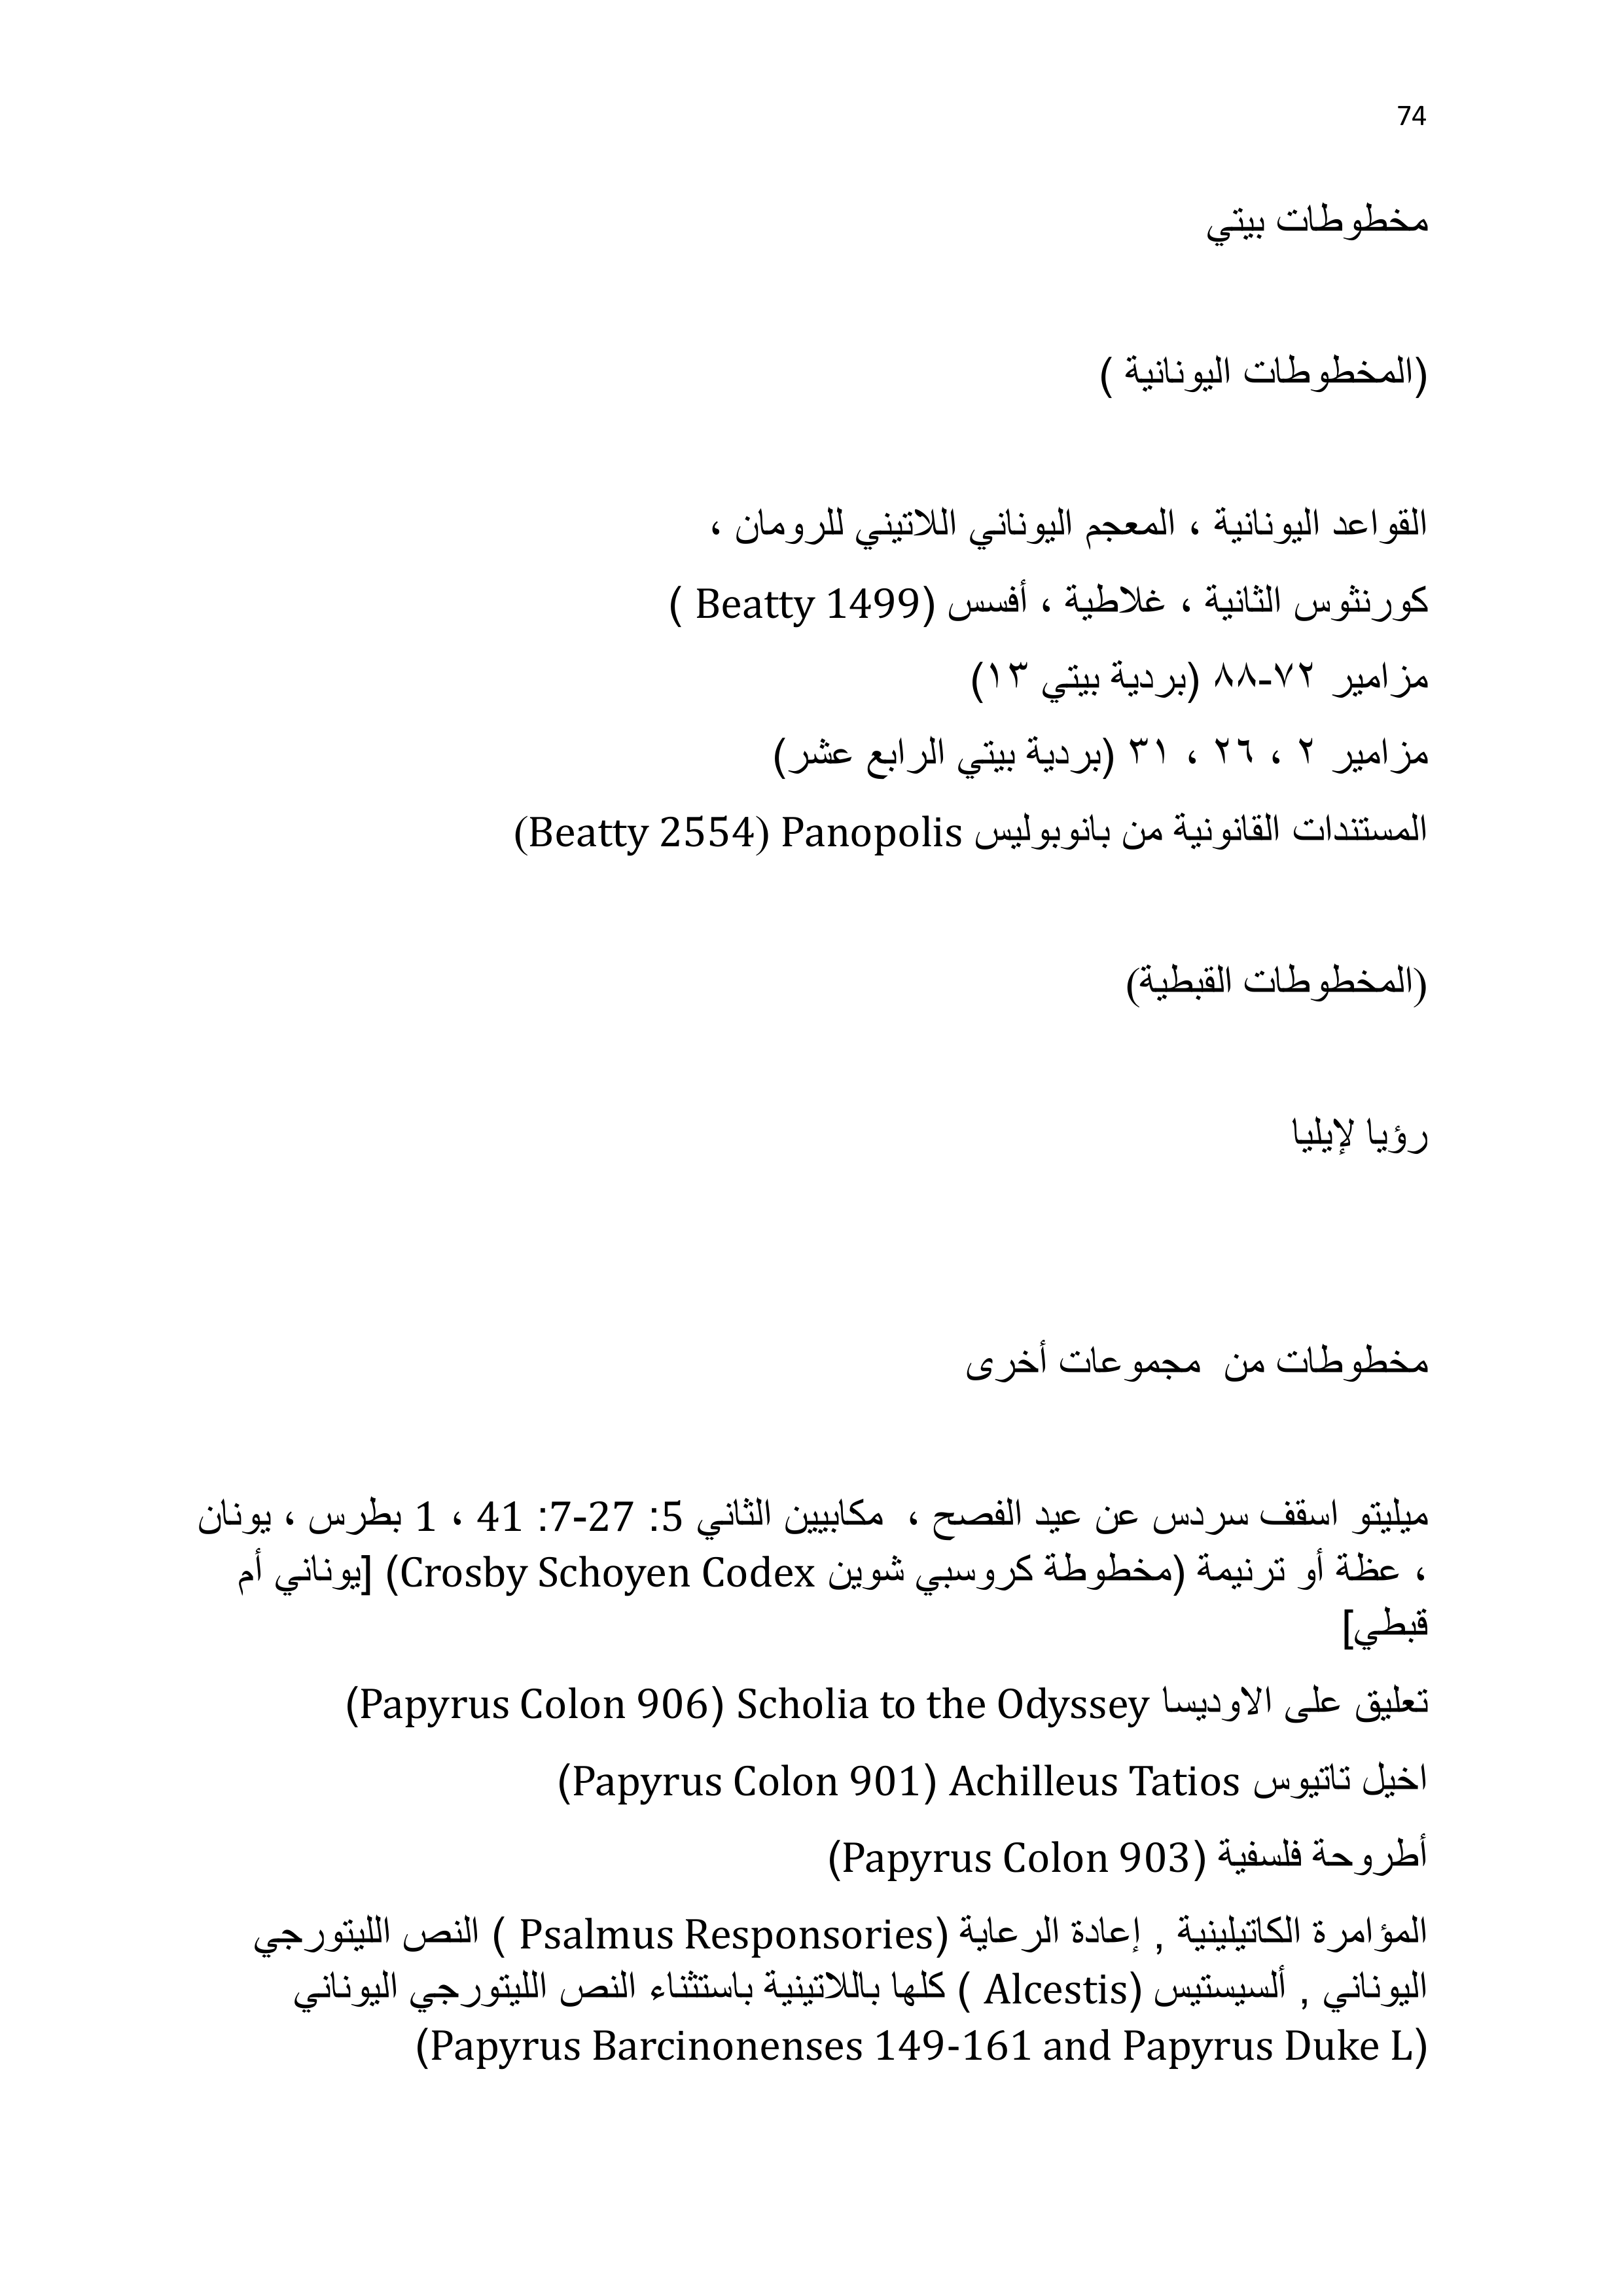 74
مخطوطات بيتي
(المخطوطات اليونانية )
القواعد اليونانية ، المعجم اليوناني اللاتيني للرومان ،
كورنثوس الثانية ، غلاطية ، أفسس (Beatty 1499 )
مزامير ٧٢-٨٨ (بردية بيتي ١٣)
مزامير ٢ ، ٢٦ ، ٣١ (بردية بيتي الرابع عشر)
المستندات القانونية من بانوبوليس Panopolis (Beatty 2554)
(المخطوطات القبطية)
رؤيا لإيليا
مخطوطات من مجموعات أخرى
ميليتو اسقف سردس عن عيد الفصح ، مكابيين الثاني 5: 27-7: 41 ، 1 بطرس ، يونان
، عظة أو ترنيمة (مخطوطة كروسبي شوين Crosby Schoyen Codex) [يوناني أم
قبطي]
تعليق على الاوديسا Scholia to the Odyssey (Papyrus Colon 906)
اخيل تاتيوس Achilleus Tatios (Papyrus Colon 901)
أطروحة فلسفية (Papyrus Colon 903)
المؤامرة الكاتيلينية , إعادة الرعاية (Psalmus Responsories ) النص الليتورجي
اليوناني , ألسيستيس (Alcestis ) كلها باللاتينية باستثناء النص الليتورجي اليوناني
(Papyrus Barcinonenses 149-161 and Papyrus Duke L)